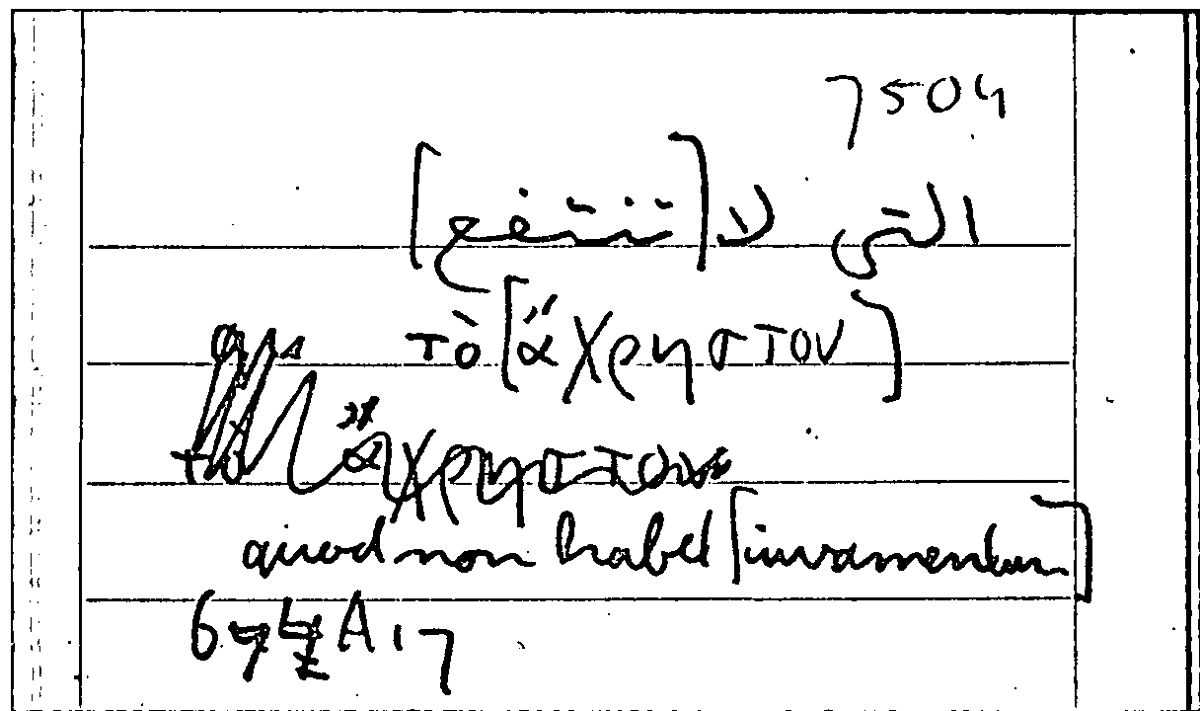 7504
التى لا [تنتفع]
τὸ [ἄχρηστον]
τὸ ἄχρηστον
quod non habet [iuvamentum]
A 17